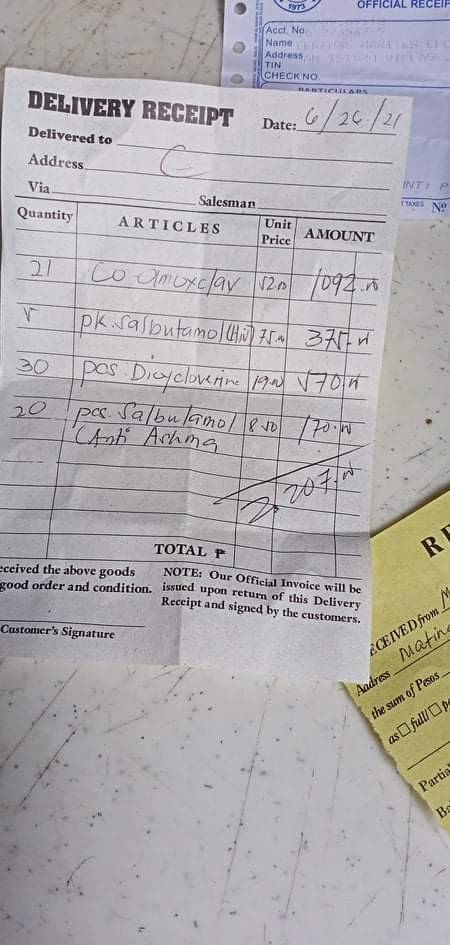 1973
OFFICIAL RECEIP
Acct. No.
Name
Address
TIN
CHECK NO.
PARTICULARS
DELIVERY RECEIPT
Date: 6/26/21
Delivered to
Address C
Via
Salesman
Quantity ARTICLES Unit Price AMOUNT
21 Co-amoxclav 52.00 1092.00
5 pk. Salbutamol 75.00 375.00
30 pcs. Dicycloverine 19.00 570.00
20 pcs. Salbutamol 8.50 170.00
(Anti Ashma
2207.00
TOTAL ₱
eceived the above goods
good order and condition.
NOTE: Our Official Invoice will be
issued upon return of this Delivery
Receipt and signed by the customers.
Customer's Signature
TAXES Nº
RE
ECEIVED from M
Address Matin
the sum of Pesos
as ☐ full/ ☐ p
Partial
Ba